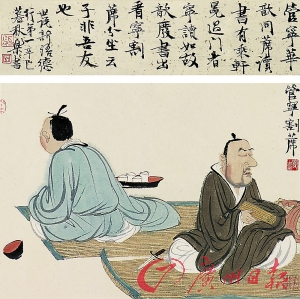 管寧華
歆同席讀
書有乘軒
冕過門者
寧讀如故
歆廢書出
看寧割
席分坐云
子非吾友
也
世說新語德
行第一辛巳
管寧割席
廣州日报